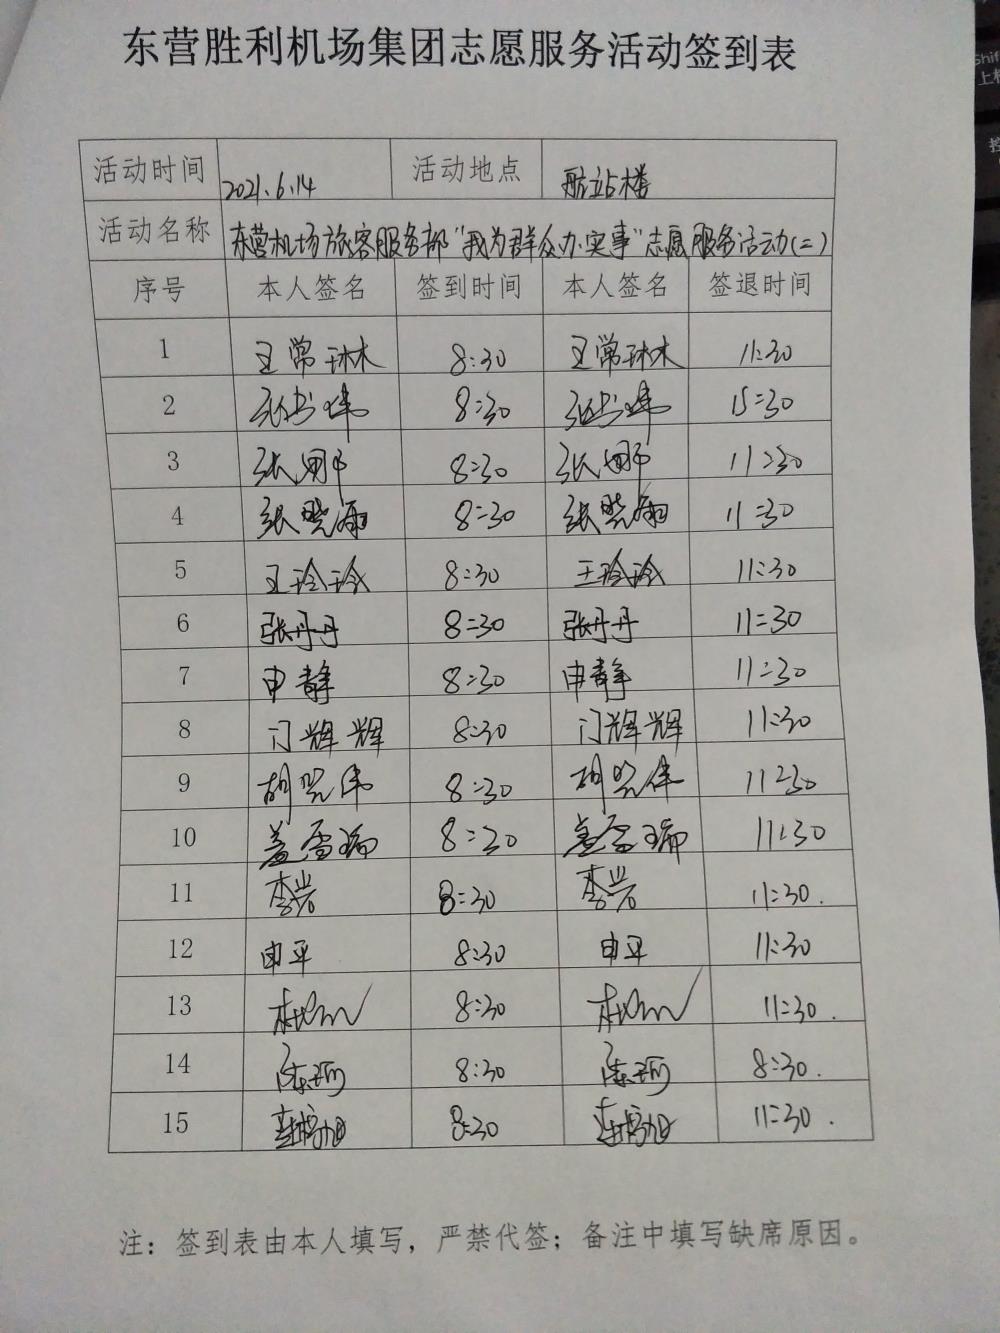 东营胜利机场集团志愿服务活动签到表
活动时间 2021.6.14 活动地点 航站楼
活动名称 东营机场旅客服务部“我为群众办实事”志愿服务活动(二)
序号 本人签名 签到时间 本人签名 签退时间
1 王常琳 8:30 王常琳 11:30
2 张书玮 8:30 张书玮 15:30
3 张娜 8:30 张娜 11:30
4 张晓雨 8:30 张晓雨 11:30
5 王玲玲 8:30 王玲玲 11:30
6 张丹丹 8:30 张丹丹 11:30
7 申静 8:30 申静 11:30
8 门辉辉 8:30 门辉辉 11:30
9 胡晓伟 8:30 胡晓伟 11:30
10 盖雪瑞 8:30 盖雪瑞 11:30
11 李岩 8:30 李岩 11:30.
12 申平 8:30 申平 11:30
13 8:30 11:30.
14 陈珂 8:30 陈珂 8:30.
15 8:30 11:30.
注：签到表由本人填写，严禁代签；备注中填写缺席原因。
上档
控
Shif